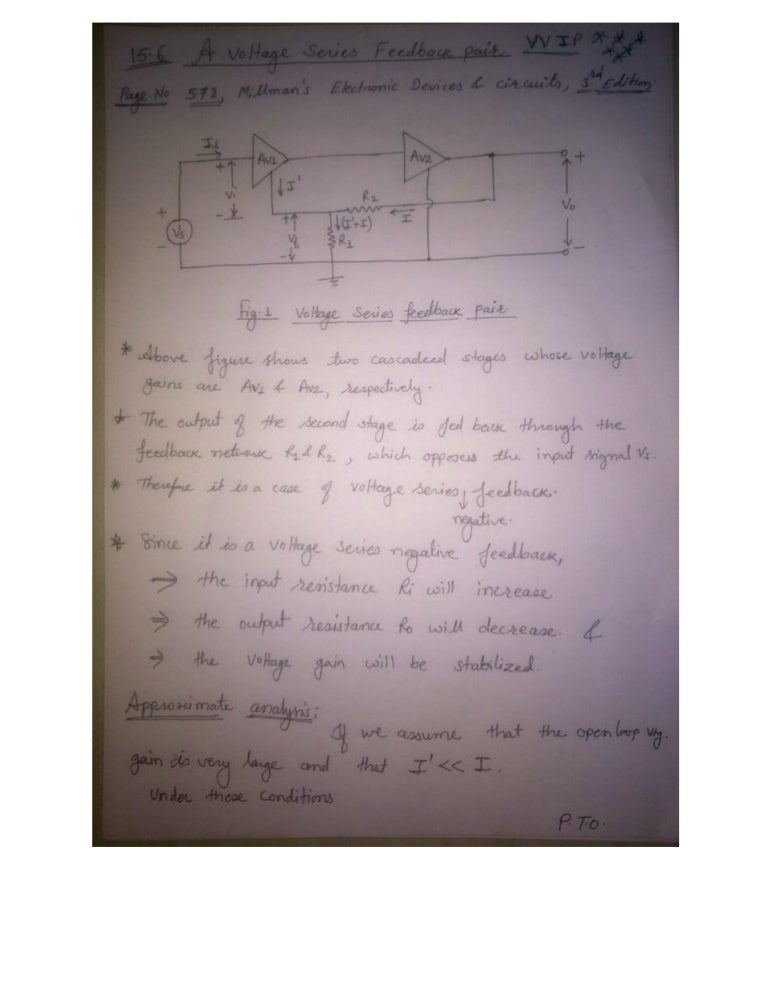 15.6 A Voltage Series Feedback pair VVIP ***
***
Page No 578, Millman's Electronic Devices & circuits, 3rd Edition
Ii
+ AV1 AV2 +
Vi ↓I' R2 Vo
- + ↓(I'+I) ← I
+ Vs - Vf - R1 -
Fig. 1 Voltage Series feedback pair
* Above figure shows two cascadeed stages whose voltage
gains are AV1 & AV2, respectively.
* The output of the second stage is fed back through the
feedback network R1 & R2, which opposes the input signal Vs.
* Therefore it is a case of voltage series ↓ feedback.
negative.
* Since it is a voltage series negative feedback,
→ the input resistance Ri will increase
⇒ the output resistance Ro will decrease. &
→ the voltage gain will be stabilized.
Approximate analysis:
If we assume that the open loop vtg.
gain is very large and that I' << I.
Under these conditions
P.T.O.